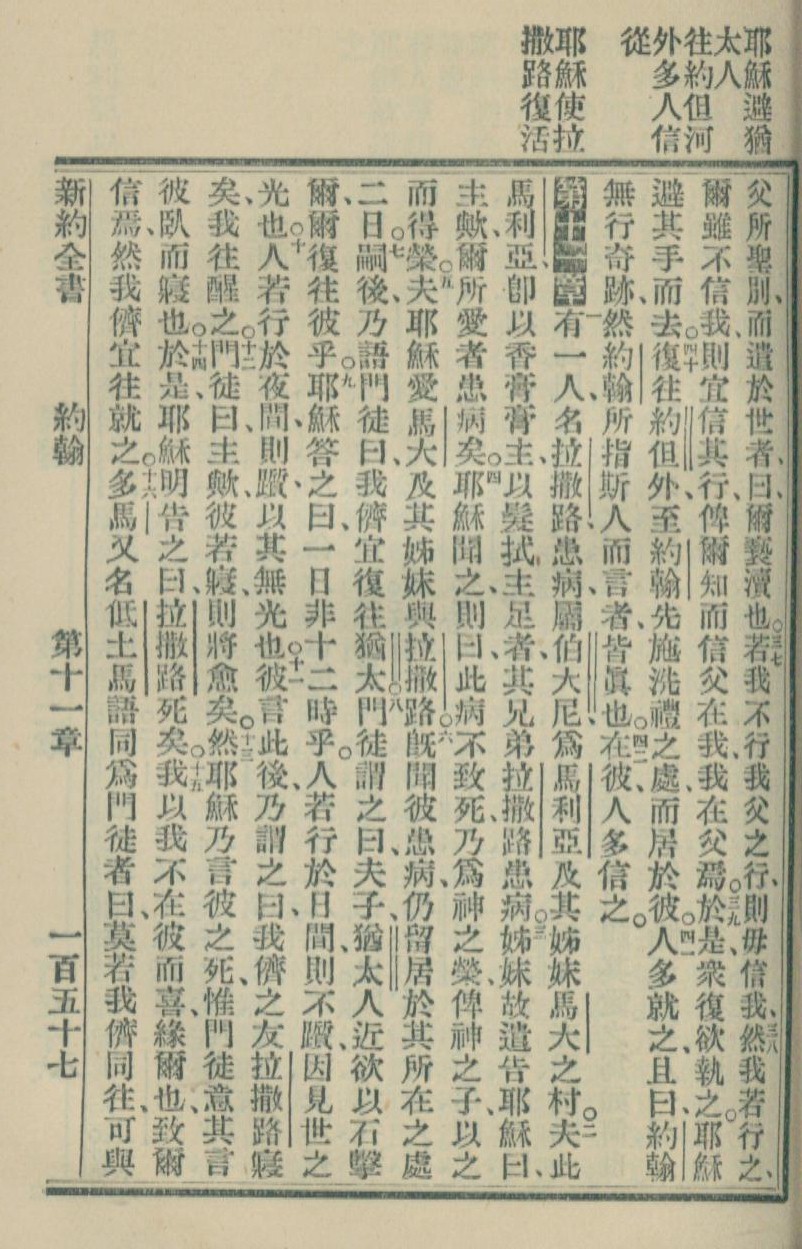 耶穌避猶
太人
往約但河
外多人信
從
耶穌使拉
撒路復活
父所聖別、而遣於世者、曰、爾褻瀆也。三七若我不行我父之行、則毋信我、三八然我若行之、
爾雖不信我、則宜信其行、俾爾知而信父在我、我在父焉。三九於是、衆復欲執之。耶穌
避其手而去。四十復往約但外、至約翰先施洗禮之處、而居於彼。四一人多就之、且曰、約翰
無行奇跡、然約翰所指斯人而言者、皆眞也。四二在彼人多信之。
第十一章 一有一人名拉撒路、患病、屬伯大尼、爲馬利亞及其姊妹馬大之村。二夫此
馬利亞、卽以香膏膏主、以髮拭主足者、其兄弟拉撒路患病。三姊妹故遣告耶穌曰、
主歟、爾所愛者患病矣。四耶穌聞之、則曰、此病不致死、乃爲神之榮、俾神之子以之
而得榮。五夫耶穌愛馬大及其姊妹與拉撒路。六旣聞彼患病、仍留居於其所在之處
二日。七嗣後、乃語門徒曰、我儕宜復往猶太。八門徒謂之曰、夫子、猶太人近欲以石擊
爾、爾復往彼乎。九耶穌答之曰、一日非十二時乎。人若行於日間、則不躓、因見世之
光也。十人若行於夜間、則躓、以其無光也。十一彼言此後、乃謂之曰、我儕之友拉撒路寢
矣、我往醒之。十二門徒曰、主歟、彼若寢、則將愈矣。十三然耶穌乃言彼之死、惟門徒意其言
彼臥而寢也。十四於是、耶穌明告之曰、拉撒路死矣。十五我以我不在彼而喜、緣爾也、致爾
信焉、然我儕宜往就之。十六多馬又名低土馬、語同爲門徒者曰、莫若我儕同往、可與
新約全書 約翰 第十一章 一百五十七